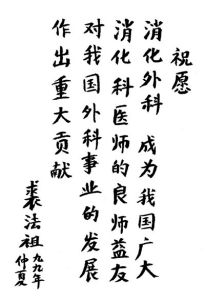 祝愿
消化外科 成为我国广大
消化科医师的良师益友
对我国外科事业的发展
作出重大贡献
裘法祖
九九年
仲夏